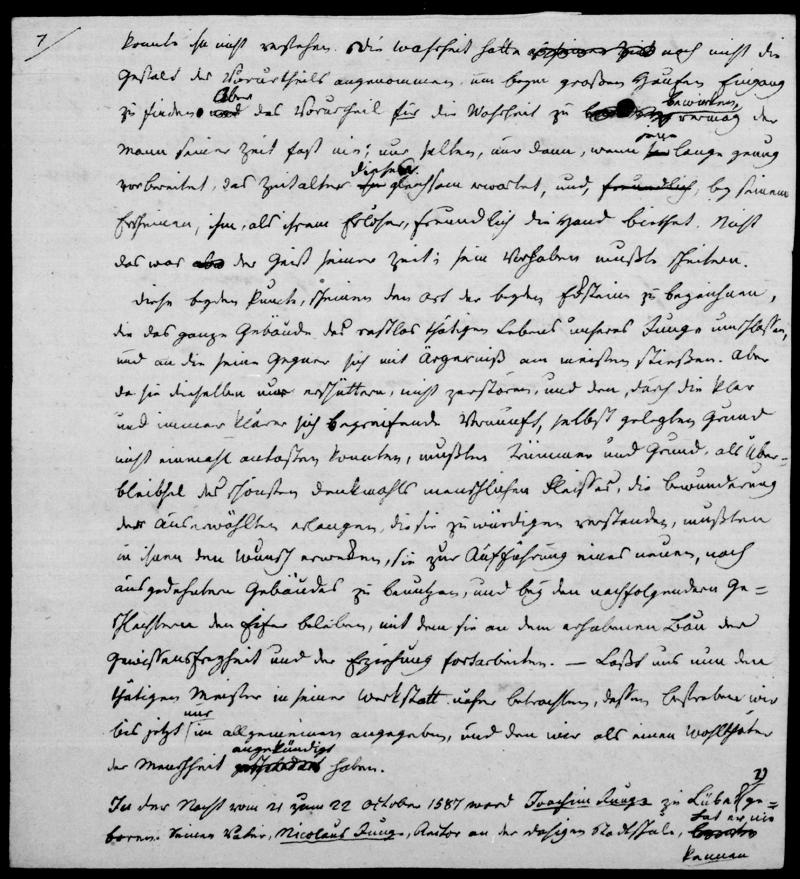 7/
konnte sie nicht verstehen. Die Wahrheit hatte noch nicht die
Gestalt des Vorurtheils angenommen um beym großen Haufen Eingang
zu finden. Aber das Vorurtheil für die Wahrheit zu bewirken, vermag der
Mann seiner Zeit fast nie; nur selten, nur dann, wenn lange genug
vorbereitet, das Zeitalter dieselbe gleichsam erwartet, und, freundlich, bey seinem
Erscheinen, ihm, als ihrem Erlöser, freundlich die Hand biethet. Nicht
das war aber der Geist seiner Zeit; sein Vorhaben mußte scheitern.
Diese beyden Puncte, scheinen den Ort der beyden Ecksteine zu bezeichnen,
die das ganze Gebäude des rastlos thätigen Lebens unseres Junge umschlossen,
und an die seine Gegner sich mit Ärgerniß am meisten stießen. Aber
da sie dieselben nur erschüttern, nicht zerstören, und den, durch die klar
und immer klärer sich begreifende Vernunft, selbst gelegten Grund
nicht einmahl antasten konnten, mußten Trümmer und Grund, als Über-
bleibsel des schönsten Denkmahls menschlichen Fleisses, die Bewunderung
der Auserwählten erlangen, die sie zu würdigen verstanden, mußten
in ihnen den Wunsch erwecken, sie zur Aufführung eines neuen, noch
ausgedehntern Gebäudes zu benutzen, und bey den nachfolgendern Ge=
schlechtern den Eifer beleben, mit dem sie an dem erhabenen Bau der
Gewissensfreyheit und der Erziehung fortarbeiten. — Laßt uns nun den
thätigen Meister in seiner Werkstatt näher betrachten, dessen Bestreben wir
bis jetzt nur im allgemeinen angegeben, und den wir als einen Wohlthäter
der Menschheit angekündigt haben.
In der Nacht vom 21 zum 22 October 1587 ward Joachim Junge zu Lübek 1) ge=
boren. Seinen Vater, Nicolaus Junge, Rector an der dasigen Stadtschule, hat er nie
kennen